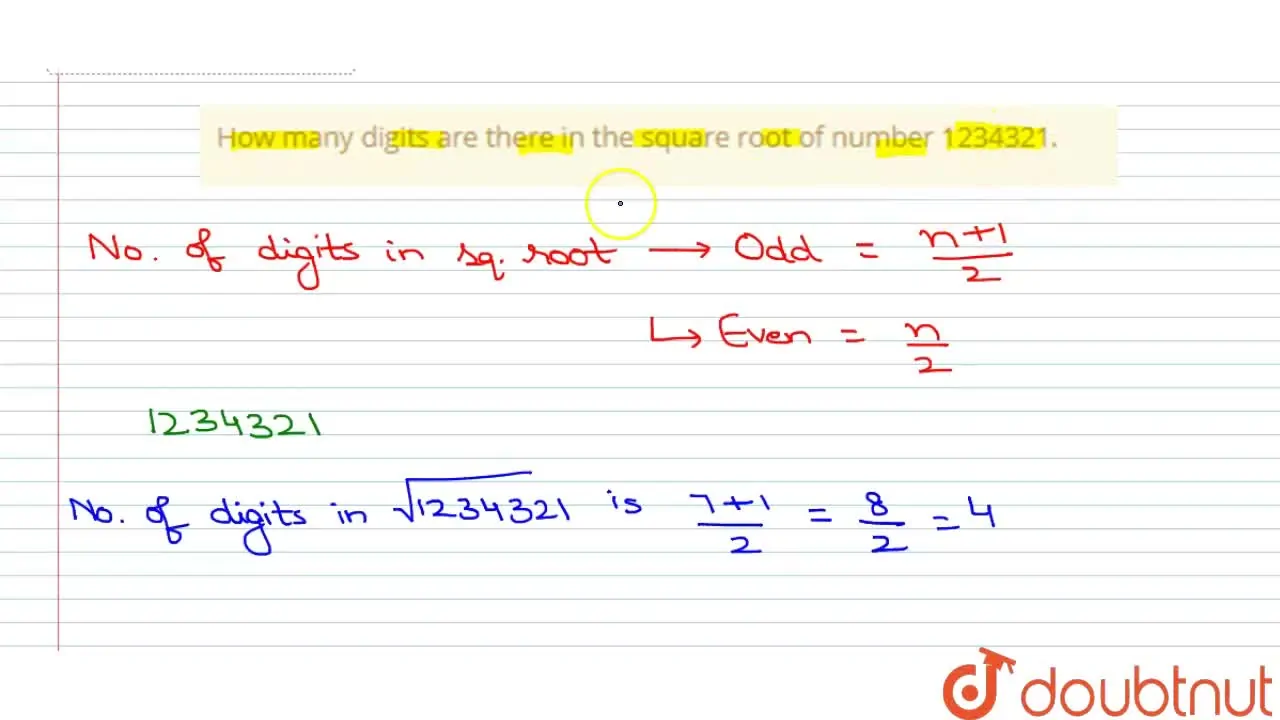 How many digits are there in the square root of number 1234321.
No. of digits in sq. root → Odd = n+1/2
↳ Even = n/2
1234321
No. of digits in √1234321 is 7+1/2 = 8/2 = 4
doubtnut